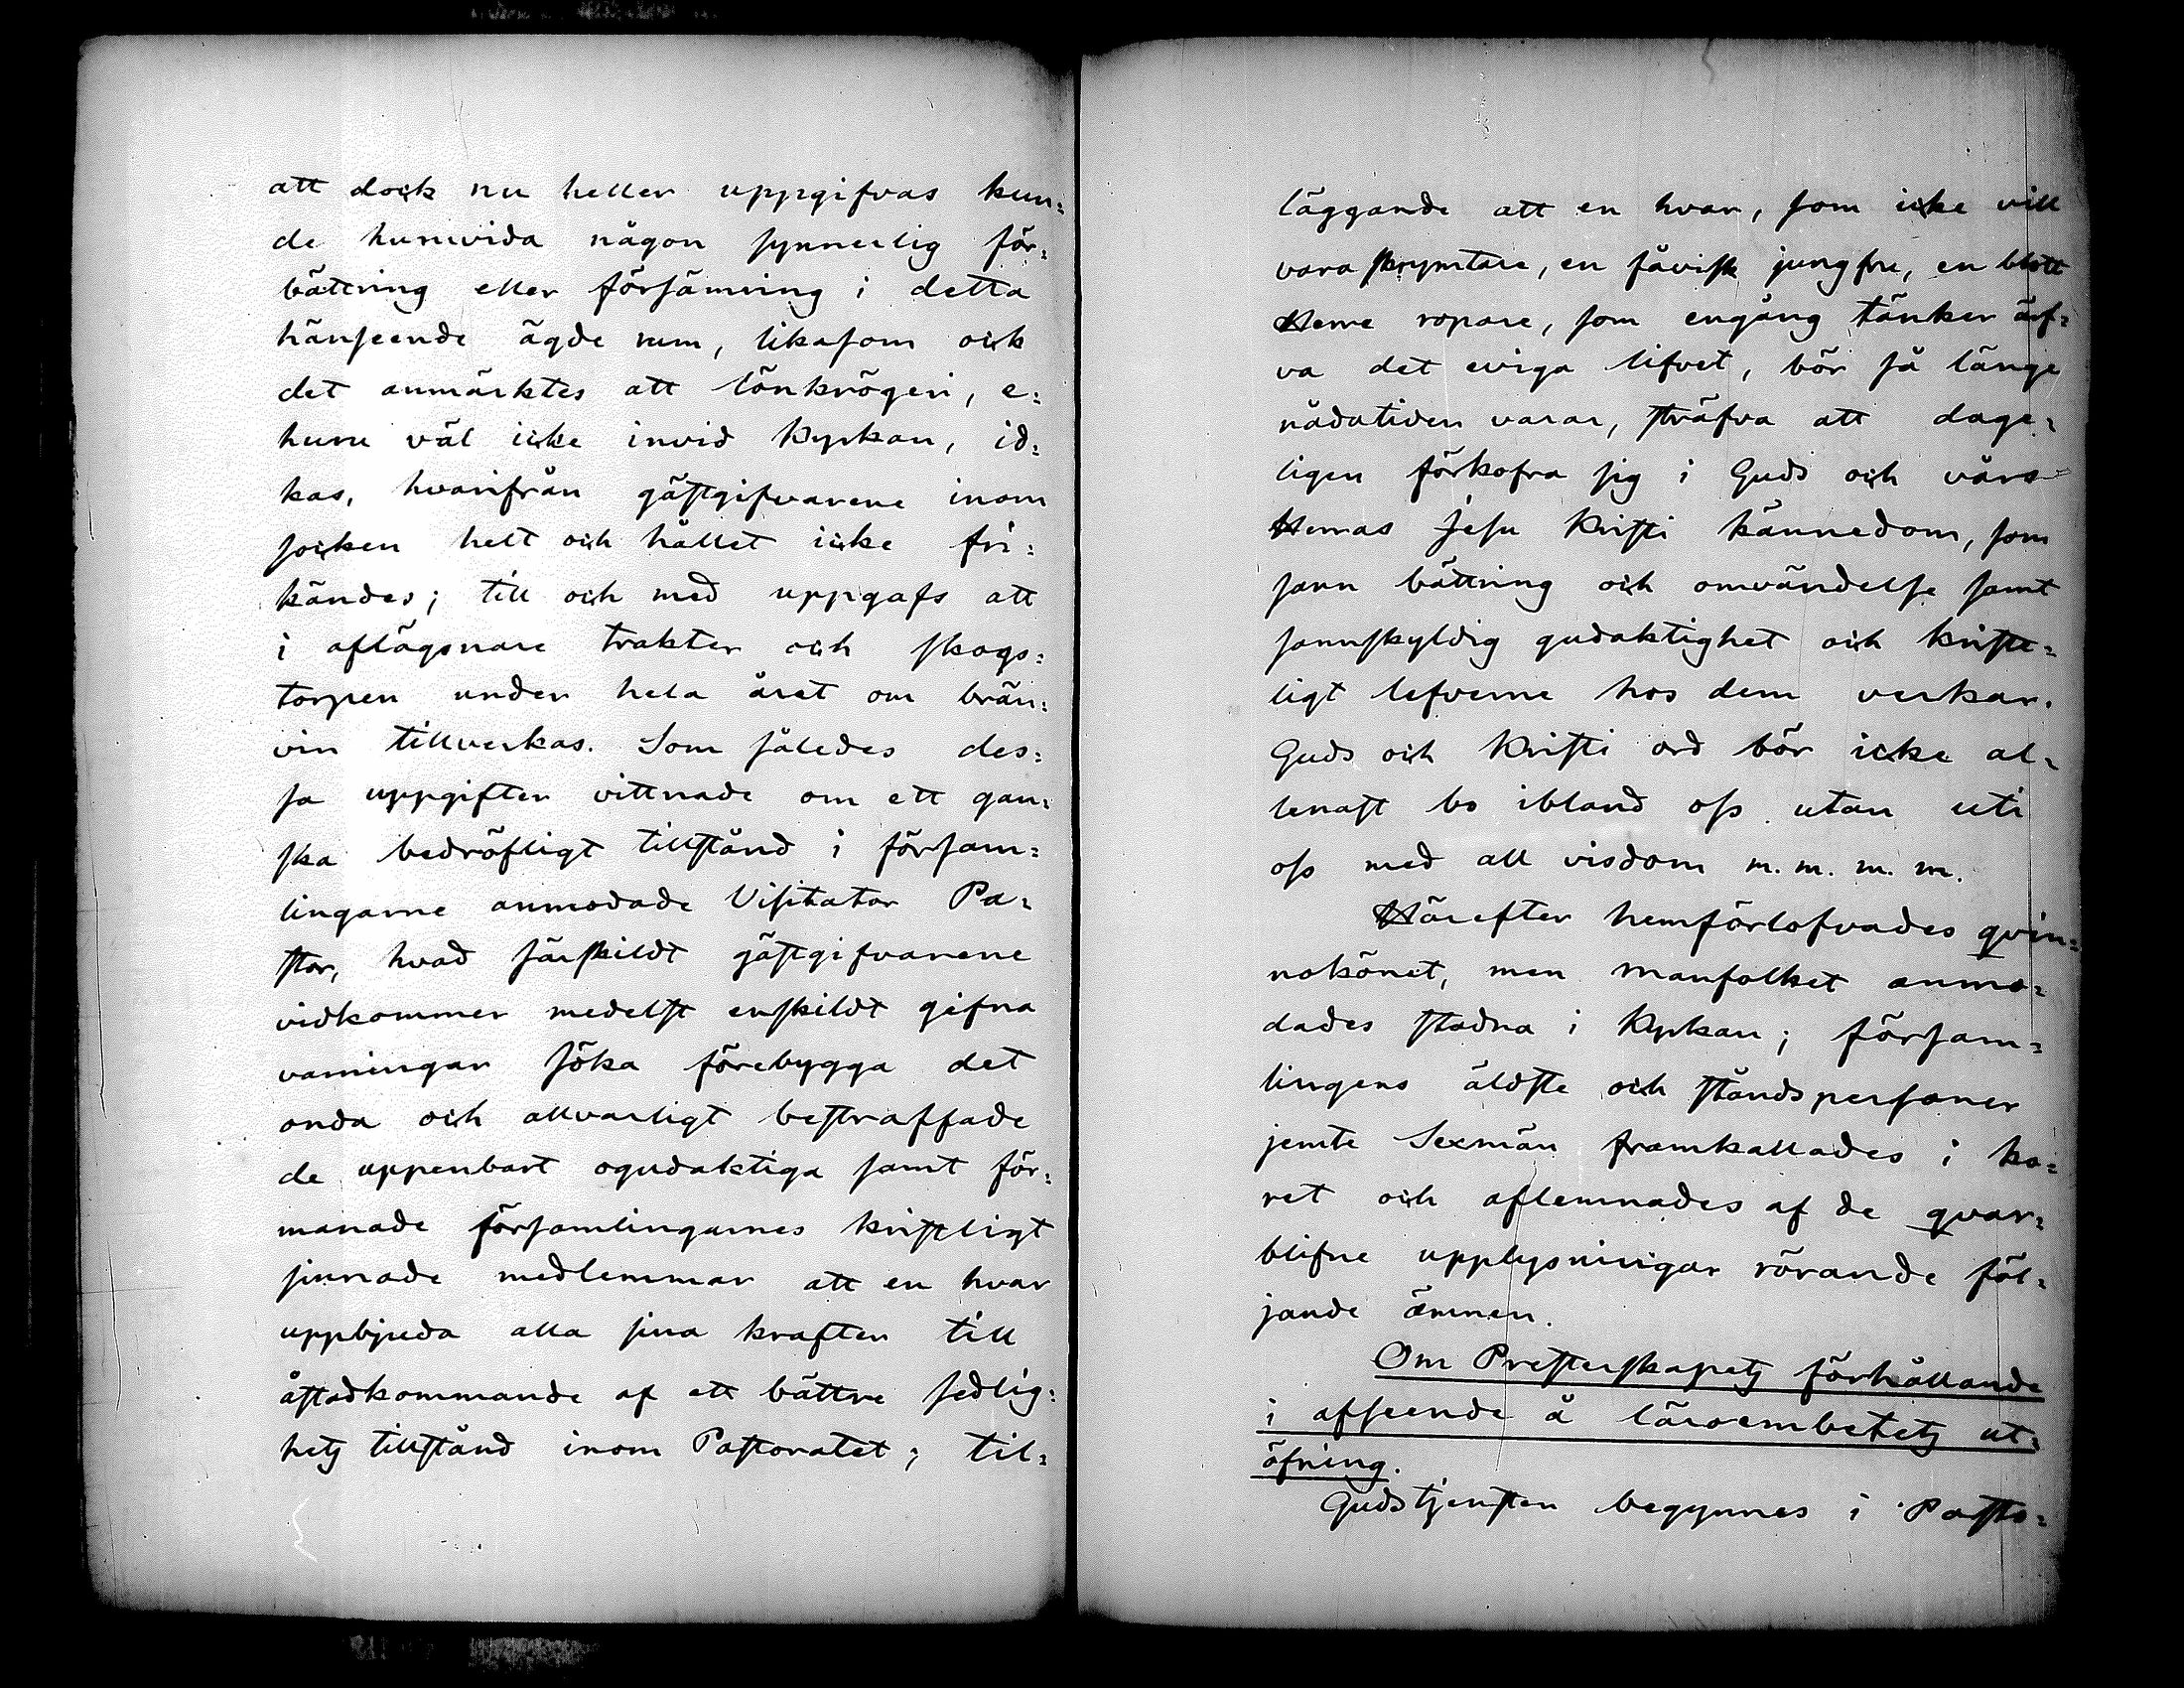 att dock nu heller uppgifvas kun=
de huruvida någon synnerlig för=
bättring eller försämring i detta
hänseende ägde rum, likasom ock
det anmärktes att lönkrögeri, e=
huru väl icke invid Kyrkan, id=
kas, hvarifrån gästgifvarene inom
socken helt och hållet icke fri=
kändes; till och med uppgafs att
i aflägsnare trakter och skogs=
torpen under hela året om brän=
vin tillverkas. Som således des=
sa uppgifter vittnade om ett gan=
ska bedröfligt tillstånd i försam=
lingarne anmodade Visitator Pa=
stor, hvad särskildt gästgifvarene
vidkommer medelst enskildt gifna
varningar söka förebygga det
onda och allvarligt bestraffade
de uppenbart ogudaktiga samt för=
manade församlingarnes kristligt
sinnade medlemmar att en hvar
uppbjuda alla sina krafter till
åstadkommande af ett bättre sedlig=
hets tillstånd inom Pastoratet; til=
läggande att en hvar, som icke vill
vara skrymtare, en fåvisk jungfru, en blott
Herre ropare, som engång tänker ärf=
va det eviga lifvet, bör så länge
nådatiden varar, sträfva att dage=
ligen förkofra sig i Guds och vårs
Herras Jesu Kristi kännedom, som
sann bättring och omvändelse samt
sannskyldig gudaktighet och kriste=
ligt lefverne hos dem verkar.
Guds och Kristi ord bör icke al=
lenast bo ibland oss utan uti
oss med all visdom m. m. m. m.
Härefter hemförlofvades qvin=
nokönet, men manfolket anmo=
dades stadna i Kyrkan; försam=
lingens äldste och ståndspersoner
jemte Sexmän framkallades i ko=
ret och aflemnades af de qvar=
blifne upplysningar rörande föl=
jande ämnen.
Om Presterskapets förhållande
i afseende å läroembetets ut=
öfning.
Gudstjensten begynnes i Pasto=